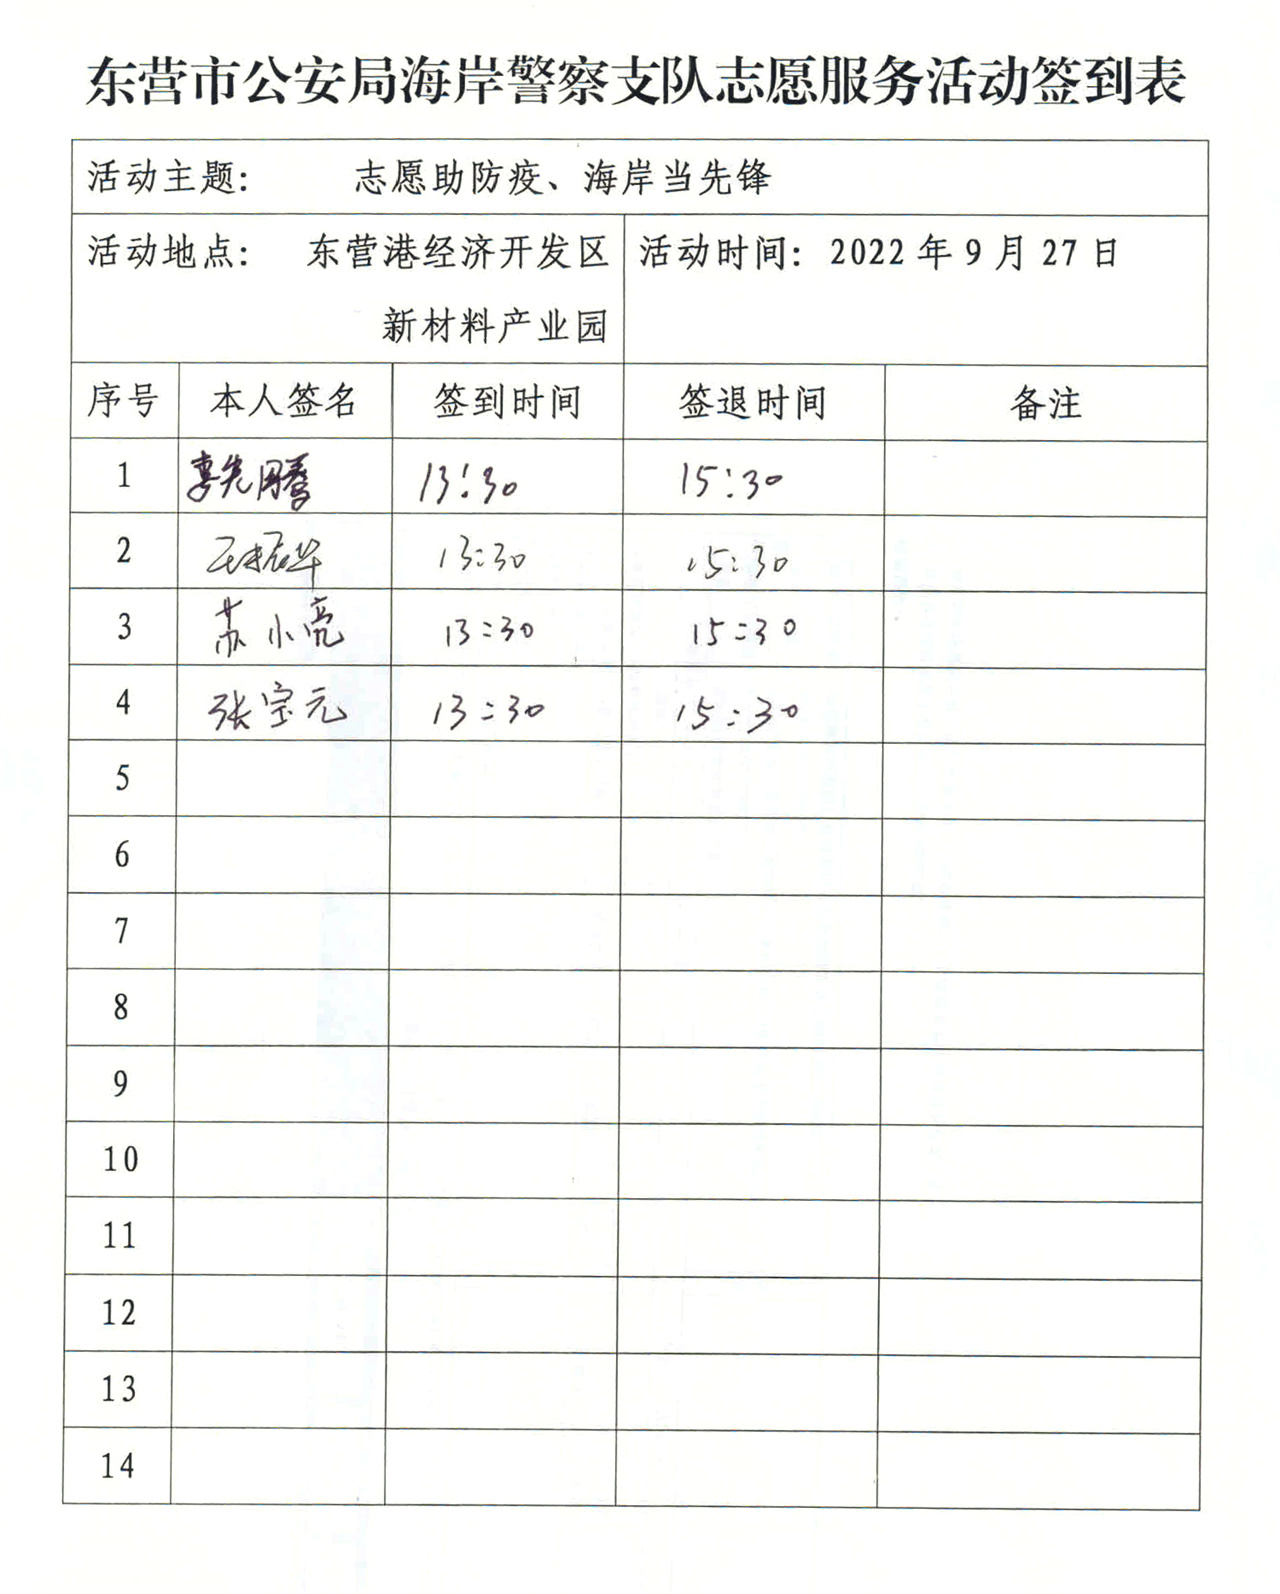 东营市公安局海岸警察支队志愿服务活动签到表
活动主题: 志愿助防疫、海岸当先锋
活动地点: 东营港经济开发区 活动时间: 2022年9月27日
新材料产业园
序号 本人签名 签到时间 签退时间 备注
1 13:30 15:30
2 王振华 13:30 15:30
3 苏小亮 13:30 15:30
4 张宝元 13:30 15:30
5
6
7
8
9
10
11
12
13
14